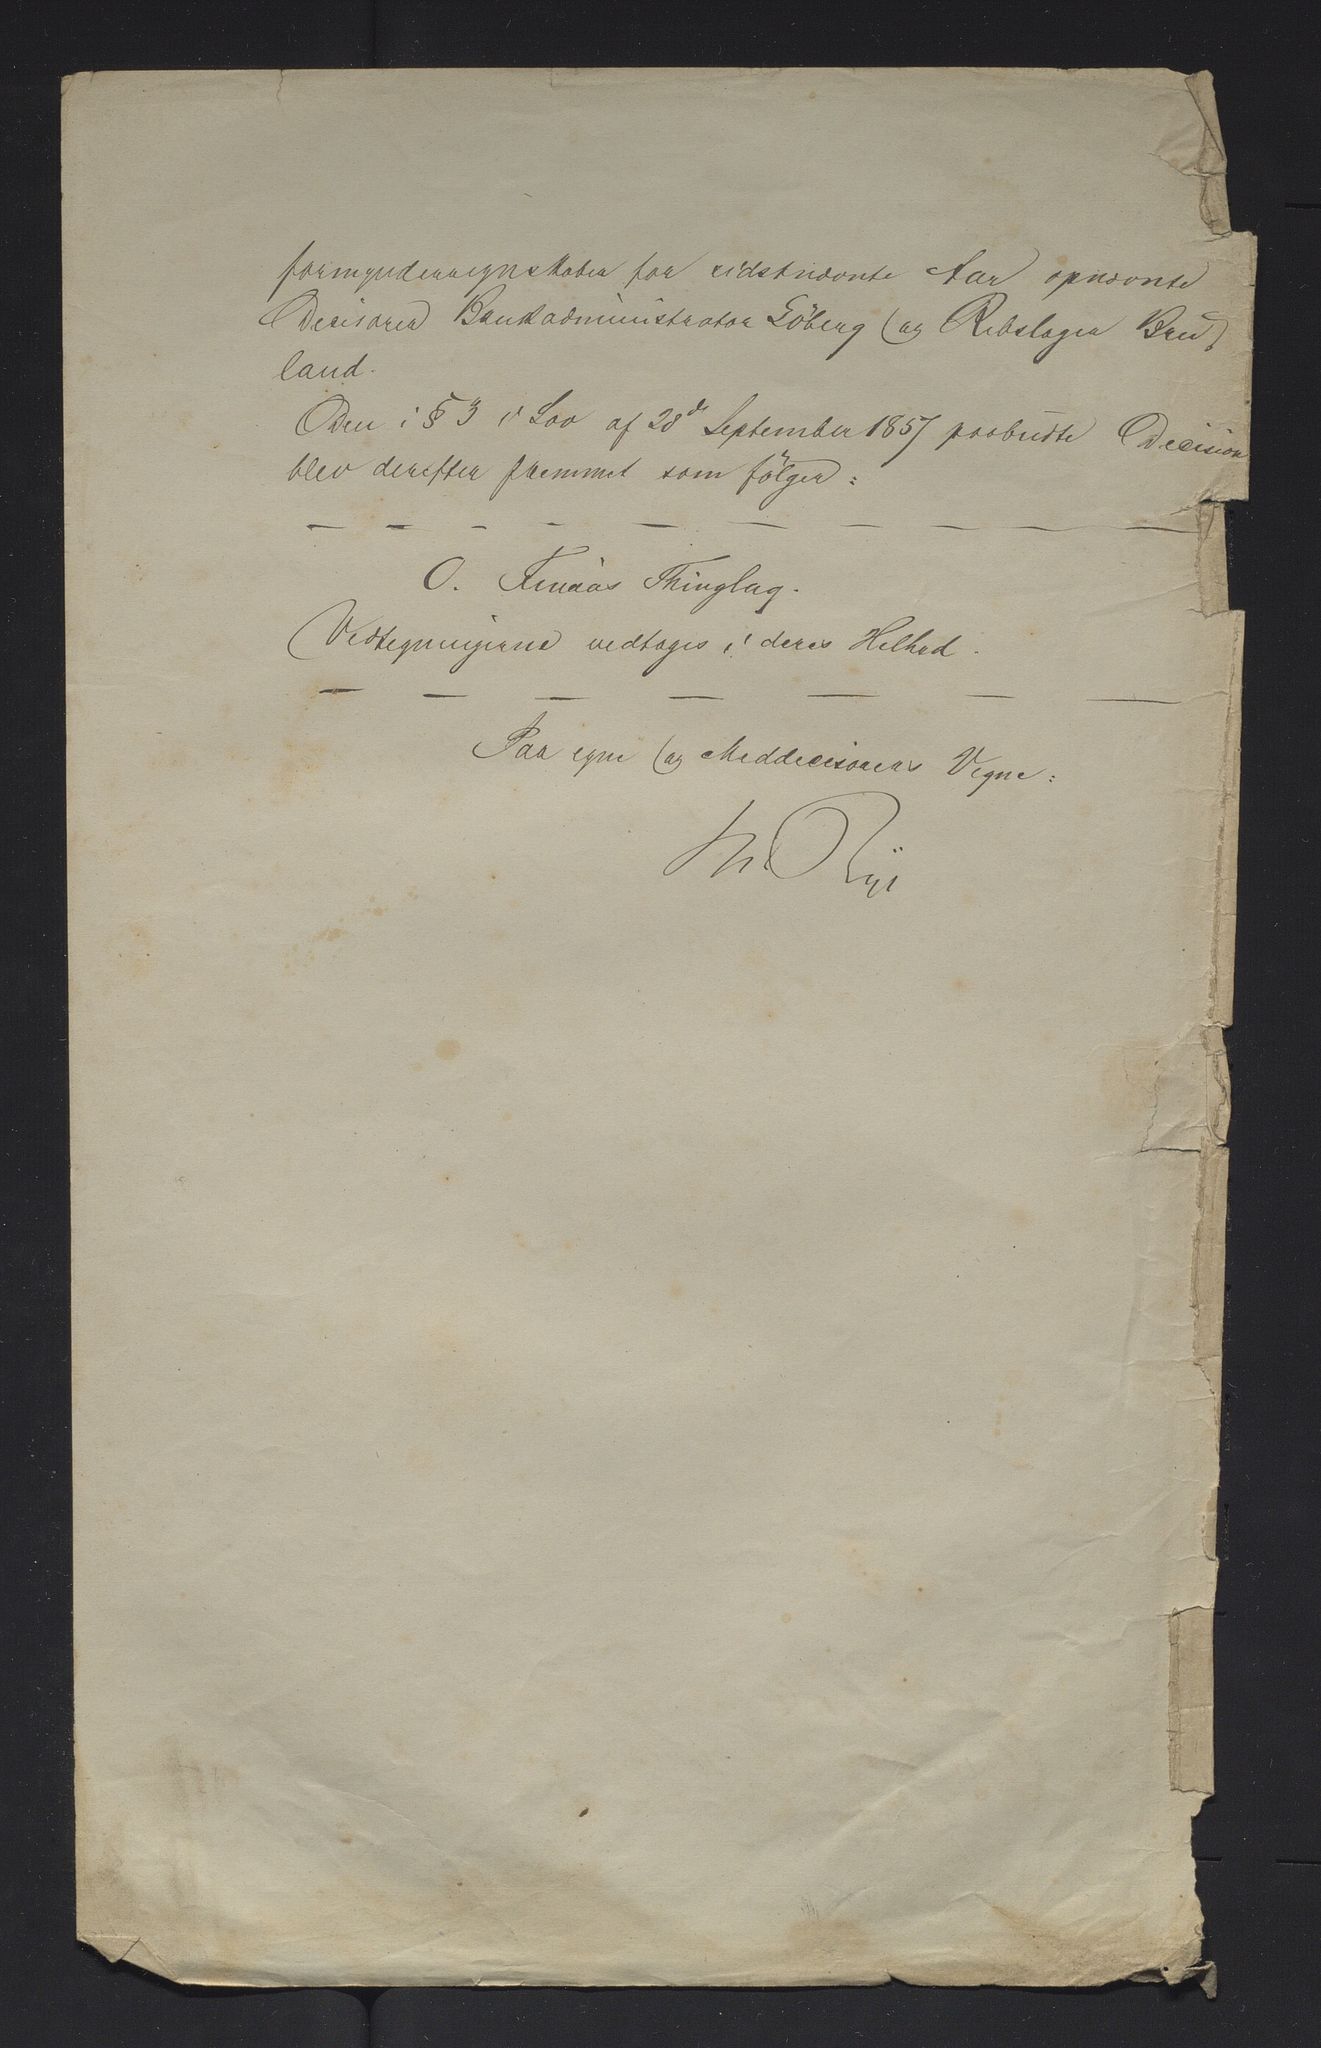 formynderregnskaber for sidstnævnte Aar opnævnte
Decisorer Bankadministrator Göberg og Rebslager Brud,
land.
Den i § 3 i Lov af 28de September 1857 paabudte Decision
blev derefter fremmet som følger:
— — — — — — — — —
O. Finaas Thinglag.
Vedtegningerne vedtages i deres Helhed.
— — — — — — —
Paa egne og Meddecisorers Vegne: